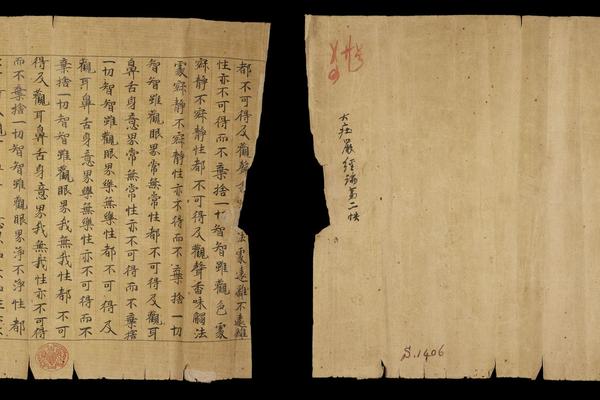 都不可得及觀聲
法處遠離不遠離
性亦不可得而不棄捨一切智智雖觀色處
寂靜不寂靜性都不可得及觀聲香味觸法
處寂靜不寂靜性亦不得而不棄捨一切
智智雖觀眼界常無常性都不可得及觀耳
鼻舌身意界常無常性亦不可得而不棄捨
一切智智雖觀眼界樂無樂性都不可得及
觀耳鼻舌身意界樂無樂性亦不可得而不
棄捨一切智智雖觀眼界我無我性都不可
得及觀耳鼻舌身意界我無我性亦不可得
而不棄捨一切智智雖觀眼界淨不淨性都
大莊嚴經論第二帙
S.1406